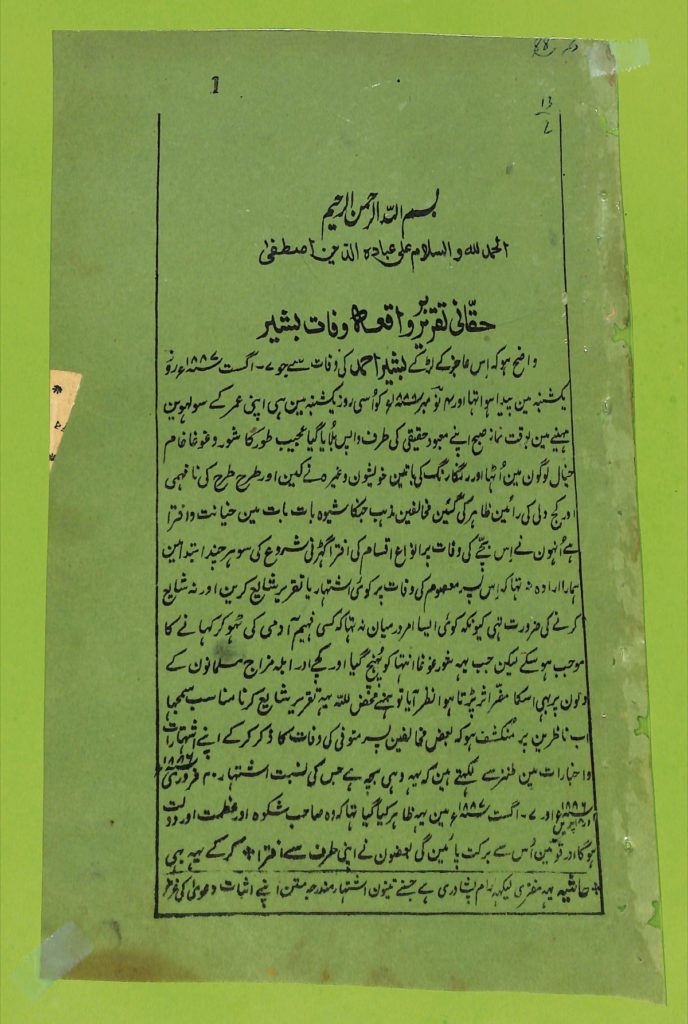 1
۱۳
بسم اللہ الرحمن الرحیم
الحمد للہ والسلام علی عبادہ الذین اصطفیٰ
حقّانی تقریر بر واقعہ وفات بشیر
واضح ہو کہ اِس عاجز کے لڑکے بشیر احمد کی وفات سے جو ۷۔ اگست ۱۸۸۷ء روز
یکشنبہ مین پیدا ہوا تہا اور ۴ نومبر ۱۸۸۸ء کو اُسی روز یکشنبہ مین ہی اپنی عمر کے سولہوین
مہینے مین بوقت نماز صبح اپنے معبود حقیقی کی طرف واپس بُلایا گیا عجیب طور کا شور و غوغا خام
خیال لوگون مین اُٹھا اور رنگارنگ کی باتین خویشون وغیرہ نے کین اور طرح طرح کی نافہمی
اور کج دلی کی رائین ظاہر کی گئین مخالفین مذہب جنکا شیوہ بات بات مین خیانت و افترا
ہے اُنہون نے اِس بچّے کی وفات پر انواع اقسام کی افترا گھڑنی شروع کی سو ہرچند ابتدا مین
ہمارا ارادہ نہ تہا کہ اِس پسر معصوم کی وفات پر کوئی اشتہار یا تقریر شایع کرین اور نہ شایع
کرنے کی ضرورت تہی کیونکہ کوئی ایسا امر درمیان نہ تہا کہ کسی فہیم آدمی کی ٹھوکر کہانے کا
موجب ہو سکے لیکن جب یہہ شور و غوغا انتہا کو پُہنچ گیا اور کچے اور ابلہ مزاج مسلمانون کے
دلون پر بہی اسکا مضر اثر پڑتا ہوا نظر آیا تو ہمنے محض للہ یہہ تقریر شایع کرنا مناسب سمجہا
اب ناظرین پر مُنکشف ہو کہ بعض مخالفین پسر متوفی کی وفات کا ذکر کر کے اپنے اشتہارات
و اخبارات مین طنز سے لکہتے ہین کہ یہہ وہی بچہ ہے جس کی نسبت اشتہار ۲۰ فروری ۱۸۸۶ء
اور ۸ اپریل ۱۸۸۶ء اور ۷۔ اگست ۱۸۸۷ء مین یہہ ظاہر کیا گیا تہا کہ وہ صاحب شکوہ اور عظمت اور دولت
ہوگا اور قومین اُس سے برکت پائین گی بعضون نے اپنی طرف سے افترا * کر کے یہہ بہی
* حاشیہ یہہ مفتری لیکہرام پشاوری ہے جسنے تینون اشتہار مندرجہ متن اپنے اثبات دعویٰ کی غرض